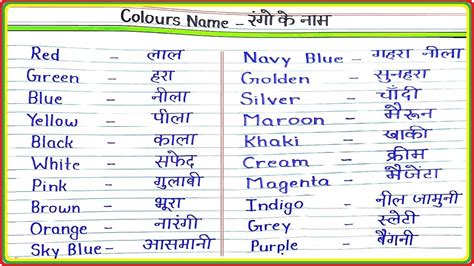 Colours Name - रंगो के नाम
Red - लाल
Green - हरा
Blue - नीला
Yellow - पीला
Black - काला
White - सफेद
Pink - गुलाबी
Brown - भूरा
Orange - नारंगी
Sky Blue - आसमानी
Navy Blue - गहरा नीला
Golden - सुनहरा
Silver - चाँदी
Maroon - मैरून
Khaki - खाकी
Cream - क्रीम
Magenta - मैजेंटा
Indigo - नील जामुनी
Grey - स्लेटी
Purple - बैंगनी